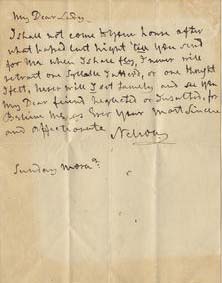 My Dear Lady
I shall not come to your house after
what passed last night till you send
for me when I shall fly, I never will
retract one syllable I utter'd, or one thought
I felt, never will I and see you
My Dear friend neglected or Insulted, for
Believe Me, as Ever Your Most Sincere
and Affectionate
Nelson
Sunday Morn:g